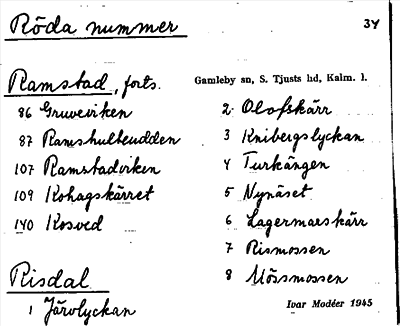 Röda nummer
34
Ramstad, forts.
Gamleby sn, S. Tjusts hd, Kalm. l.
86 Gruveviken
87 Ramshulteudden
107 Ramstadviken
109 Kohagskärret
140 Kosved
Risdal
1 Järvlyckan
2 Olofskärr
3 Knibergslyckan
4 Turkängen
5 Nynäset
6 Lagermanskärr
7 Rismossen
8 Mössmossen
Ivar Modéer 1945